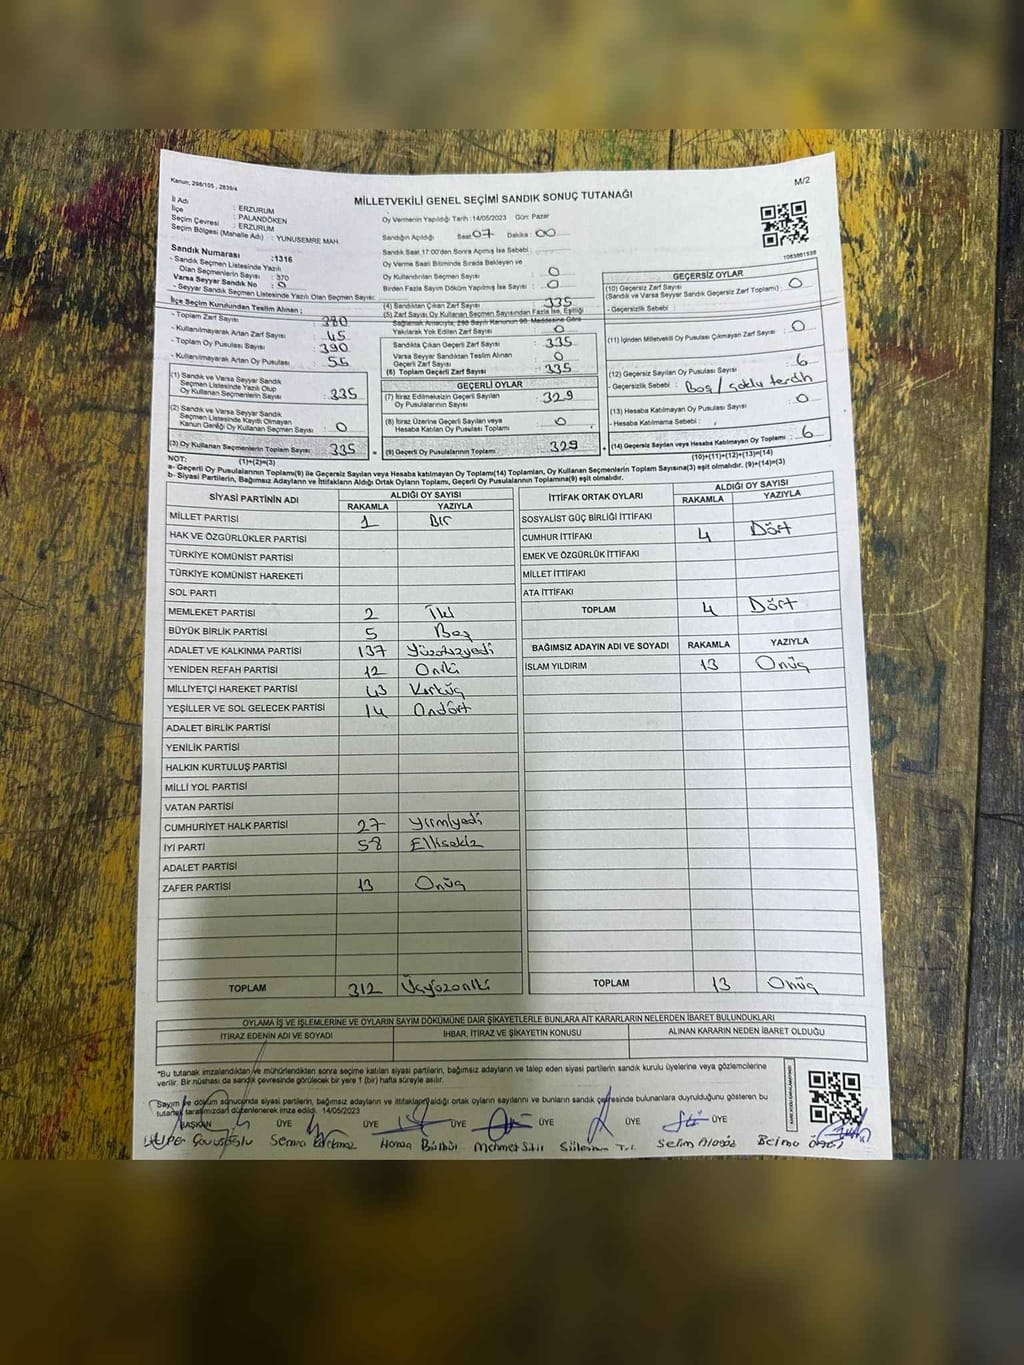 Kanun; 298/105 , 2839/4
M/2
MİLLETVEKİLİ GENEL SEÇİMİ SANDIK SONUÇ TUTANAĞI
İl Adı : ERZURUM
İlçe : PALANDÖKEN
Seçim Çevresi : ERZURUM
Seçim Bölgesi (Mahalle Adı) : YUNUSEMRE MAH.
Sandık Numarası :1316
- Sandık Seçmen Listesinde Yazılı
Olan Seçmenlerin Sayısı : 370
Varsa Seyyar Sandık No : 0
- Seyyar Sandık Seçmen Listesinde Yazılı Olan Seçmen Sayısı:
İlçe Seçim Kurulundan Teslim Alınan ;
- Toplam Zarf Sayısı : 380
- Kullanılmayarak Artan Zarf Sayısı : 45
- Toplam Oy Pusulası : 390
- Kullanılmayarak Artan Oy Pusulası : 55
(1) Sandık ve Varsa Seyyar Sandık
Seçmen Listesinde Yazılı Olup
Oy Kullanan Seçmenlerin Sayısı : 335
(2) Sandık ve Varsa Seyyar Sandık
Seçmen Listesinde Kayıtlı Olmayan
Kanun Gereği Oy Kullanan Seçmen Sayısı : 0
(3) Oy Kullanan Seçmenlerin Toplam Sayısı : 335
(1)+(2)=(3)
Oy Vermenin Yapıldığı Tarih :14/05/2023 Gün: Pazar
Sandığın Açıldığı Saat:07 Dakika: 00
Sandık Saat 17:00'den Sonra Açılmış İse Sebebi :
Oy Verme Saati Bitiminde Sırada Bekleyen ve
Oy Kullandırılan Seçmen Sayısı : 0
Birden Fazla Sayım Döküm Yapılmış İse Sayısı : 0
(4) Sandıktan Çıkan Zarf Sayısı : 335
(5) Zarf Sayısı Oy Kullanan Seçmen Sayısından Fazla İse, Eşitliği
Sağlamak Amacıyla, 298 Sayılı Kanunun 98. Maddesine Göre
Yakılarak Yok Edilen Zarf Sayısı : 0
Sandıkta Çıkan Geçerli Zarf Sayısı : 335
Varsa Seyyar Sandıktan Teslim Alınan
Geçerli Zarf Sayısı : 0
(6) Toplam Geçerli Zarf Sayısı : 335
GEÇERLİ OYLAR
(7) İtiraz Edilmeksizin Geçerli Sayılan
Oy Pusulalarının Sayısı : 329
(8) İtiraz Üzerine Geçerli Sayılan veya
Hesaba Katılan Oy Pusulası Toplamı : 0
(9) Geçerli Oy Pusulalarının Toplamı : 329
1083881538
GEÇERSİZ OYLAR
(10) Geçersiz Zarf Sayısı : 0
(Sandık ve Varsa Seyyar Sandık Geçersiz Zarf Toplamı)
- Geçersizlik Sebebi :
(11) İçinden Milletvekili Oy Pusulası Çıkmayan Zarf Sayısı : 0
(12) Geçersiz Sayılan Oy Pusulası Sayısı : 6
- Geçersizlik Sebebi : Boş / çoklu tercih
(13) Hesaba Katılmayan Oy Pusulası Sayısı : 0
- Hesaba Katılmama Sebebi :
(14) Geçersiz Sayılan veya Hesaba Katılmayan Oy Toplamı : 6
(10)+(11)+(12)+(13)=(14)
NOT:
a- Geçerli Oy Pusulalarının Toplamı(9) ile Geçersiz Sayılan veya Hesaba katılmayan Oy Toplamı(14) Toplamları, Oy Kullanan Seçmenlerin Toplam Sayısına(3) eşit olmalıdır. (9)+(14)=(3)
b- Siyasi Partilerin, Bağımsız Adayların ve İttifakların Aldığı Ortak Oyların Toplamı, Geçerli Oy Pusulalarının Toplamına(9) eşit olmalıdır.
SİYASİ PARTİNİN ADI ALDIĞI OY SAYISI
RAKAMLA YAZIYLA
MİLLET PARTİSİ 1 Bir
HAK VE ÖZGÜRLÜKLER PARTİSİ
TÜRKİYE KOMÜNİST PARTİSİ
TÜRKİYE KOMÜNİST HAREKETİ
SOL PARTİ
MEMLEKET PARTİSİ 2 İki
BÜYÜK BİRLİK PARTİSİ 5 Beş
ADALET VE KALKINMA PARTİSİ 137 Yüzotuzyedi
YENİDEN REFAH PARTİSİ 12 Oniki
MİLLİYETÇİ HAREKET PARTİSİ 43 Kırküç
YEŞİLLER VE SOL GELECEK PARTİSİ 14 Ondört
ADALET BİRLİK PARTİSİ
YENİLİK PARTİSİ
HALKIN KURTULUŞ PARTİSİ
MİLLİ YOL PARTİSİ
VATAN PARTİSİ
CUMHURİYET HALK PARTİSİ 27 Yirmiyedi
İYİ PARTİ 58 Ellisekiz
ADALET PARTİSİ
ZAFER PARTİSİ 13 Onüç
TOPLAM 312 Üçyüzoniki
İTTİFAK ORTAK OYLARI ALDIĞI OY SAYISI
RAKAMLA YAZIYLA
SOSYALİST GÜÇ BİRLİĞİ İTTİFAKI
CUMHUR İTTİFAKI 4 Dört
EMEK VE ÖZGÜRLÜK İTTİFAKI
MİLLET İTTİFAKI
ATA İTTİFAKI
TOPLAM 4 Dört
BAĞIMSIZ ADAYIN ADI VE SOYADI RAKAMLA YAZIYLA
İSLAM YILDIRIM 13 Onüç
TOPLAM 13 Onüç
OYLAMA İŞ VE İŞLEMLERİNE VE OYLARIN SAYIM DÖKÜMÜNE DAİR ŞİKAYETLERLE BUNLARA AİT KARARLARIN NELERDEN İBARET BULUNDUKLARI
İTİRAZ EDENİN ADI VE SOYADI İHBAR, İTİRAZ VE ŞİKAYETİN KONUSU ALINAN KARARIN NEDEN İBARET OLDUĞU
*Bu tutanak imzalandıktan ve mühürlendikten sonra seçime katılan siyasi partilerin, bağımsız adayların ve talep eden siyasi partilerin sandık kurulu üyelerine veya gözlemcilerine
verilir. Bir nüshası da sandık çevresinde görülecek bir yere 1 (bir) hafta süreyle asılır.
Sayım ve döküm sonucunda siyasi partilerin, bağımsız adayların ve ittifakların aldığı ortak oyların sayılarını ve bunların sandık çevresinde bulunanlara duyrulduğunu gösteren bu
tutanak tarafımızdan düzenlenerek imza edildi. 14/05/2023
BAŞKAN ÜYE ÜYE ÜYE ÜYE ÜYE ÜYE
Çavuşoğlu Semra Korkmaz Bülbül Mehmet Süleyman Selim